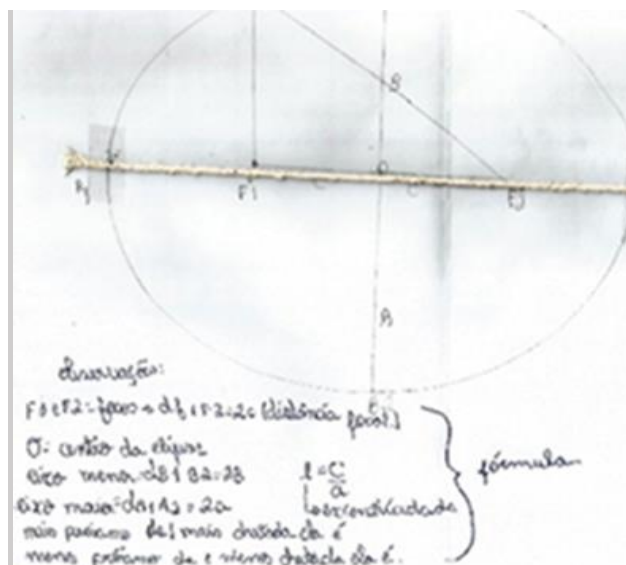 B
A1 F1 C O C F2
A
observação:
F1 e F2 = focos → dF1F2 = 2c (distância focal)
O: centro da elipse
eixo menor = dB1B2 = 2B
eixo maior = dA1A2 = 2a
e = C/a
excentricidade
fórmula
mais próximo de 1 mais achatada ela é
menos próximo de 1 menos ela é.